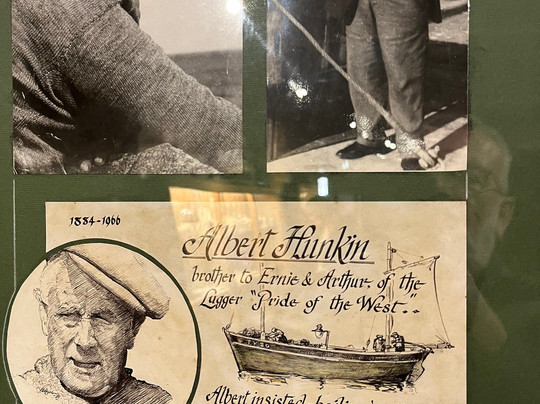 1884-1966
Albert Hunkin
brother to Ernie & Arthur of the
Lugger "Pride of the West"..
Albert insisted